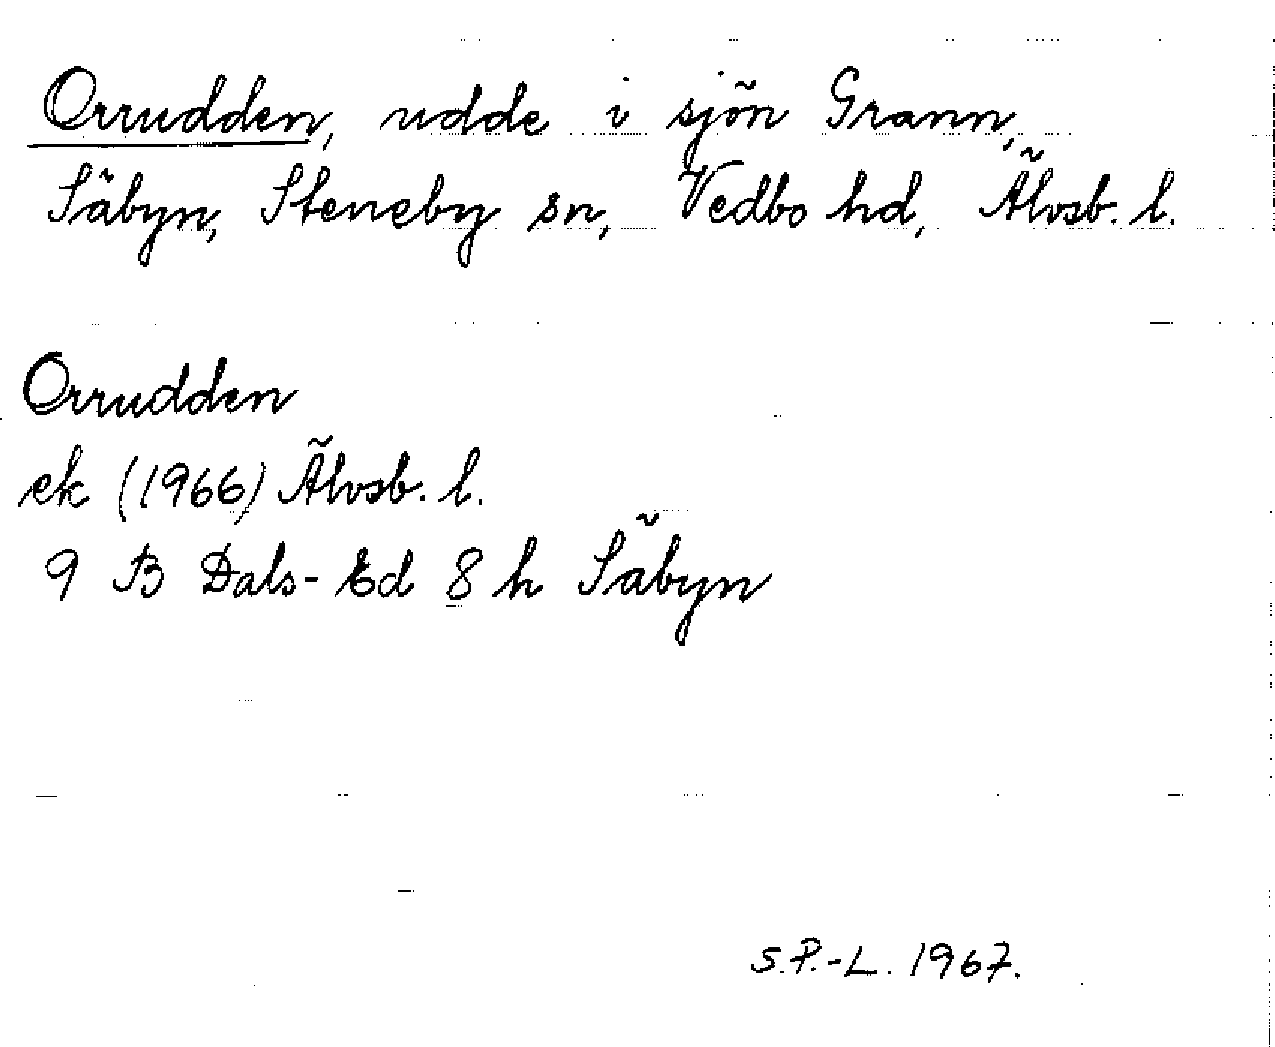 Orrudden, udde i sjön Grann,
Säbyn, Steneby sn, Vedbo hd, Älvsb. l.
Orrudden
ek (1966) Älvsb. l.
9 B Dals-Ed 8 h Säbyn
S.P.-L. 1967.